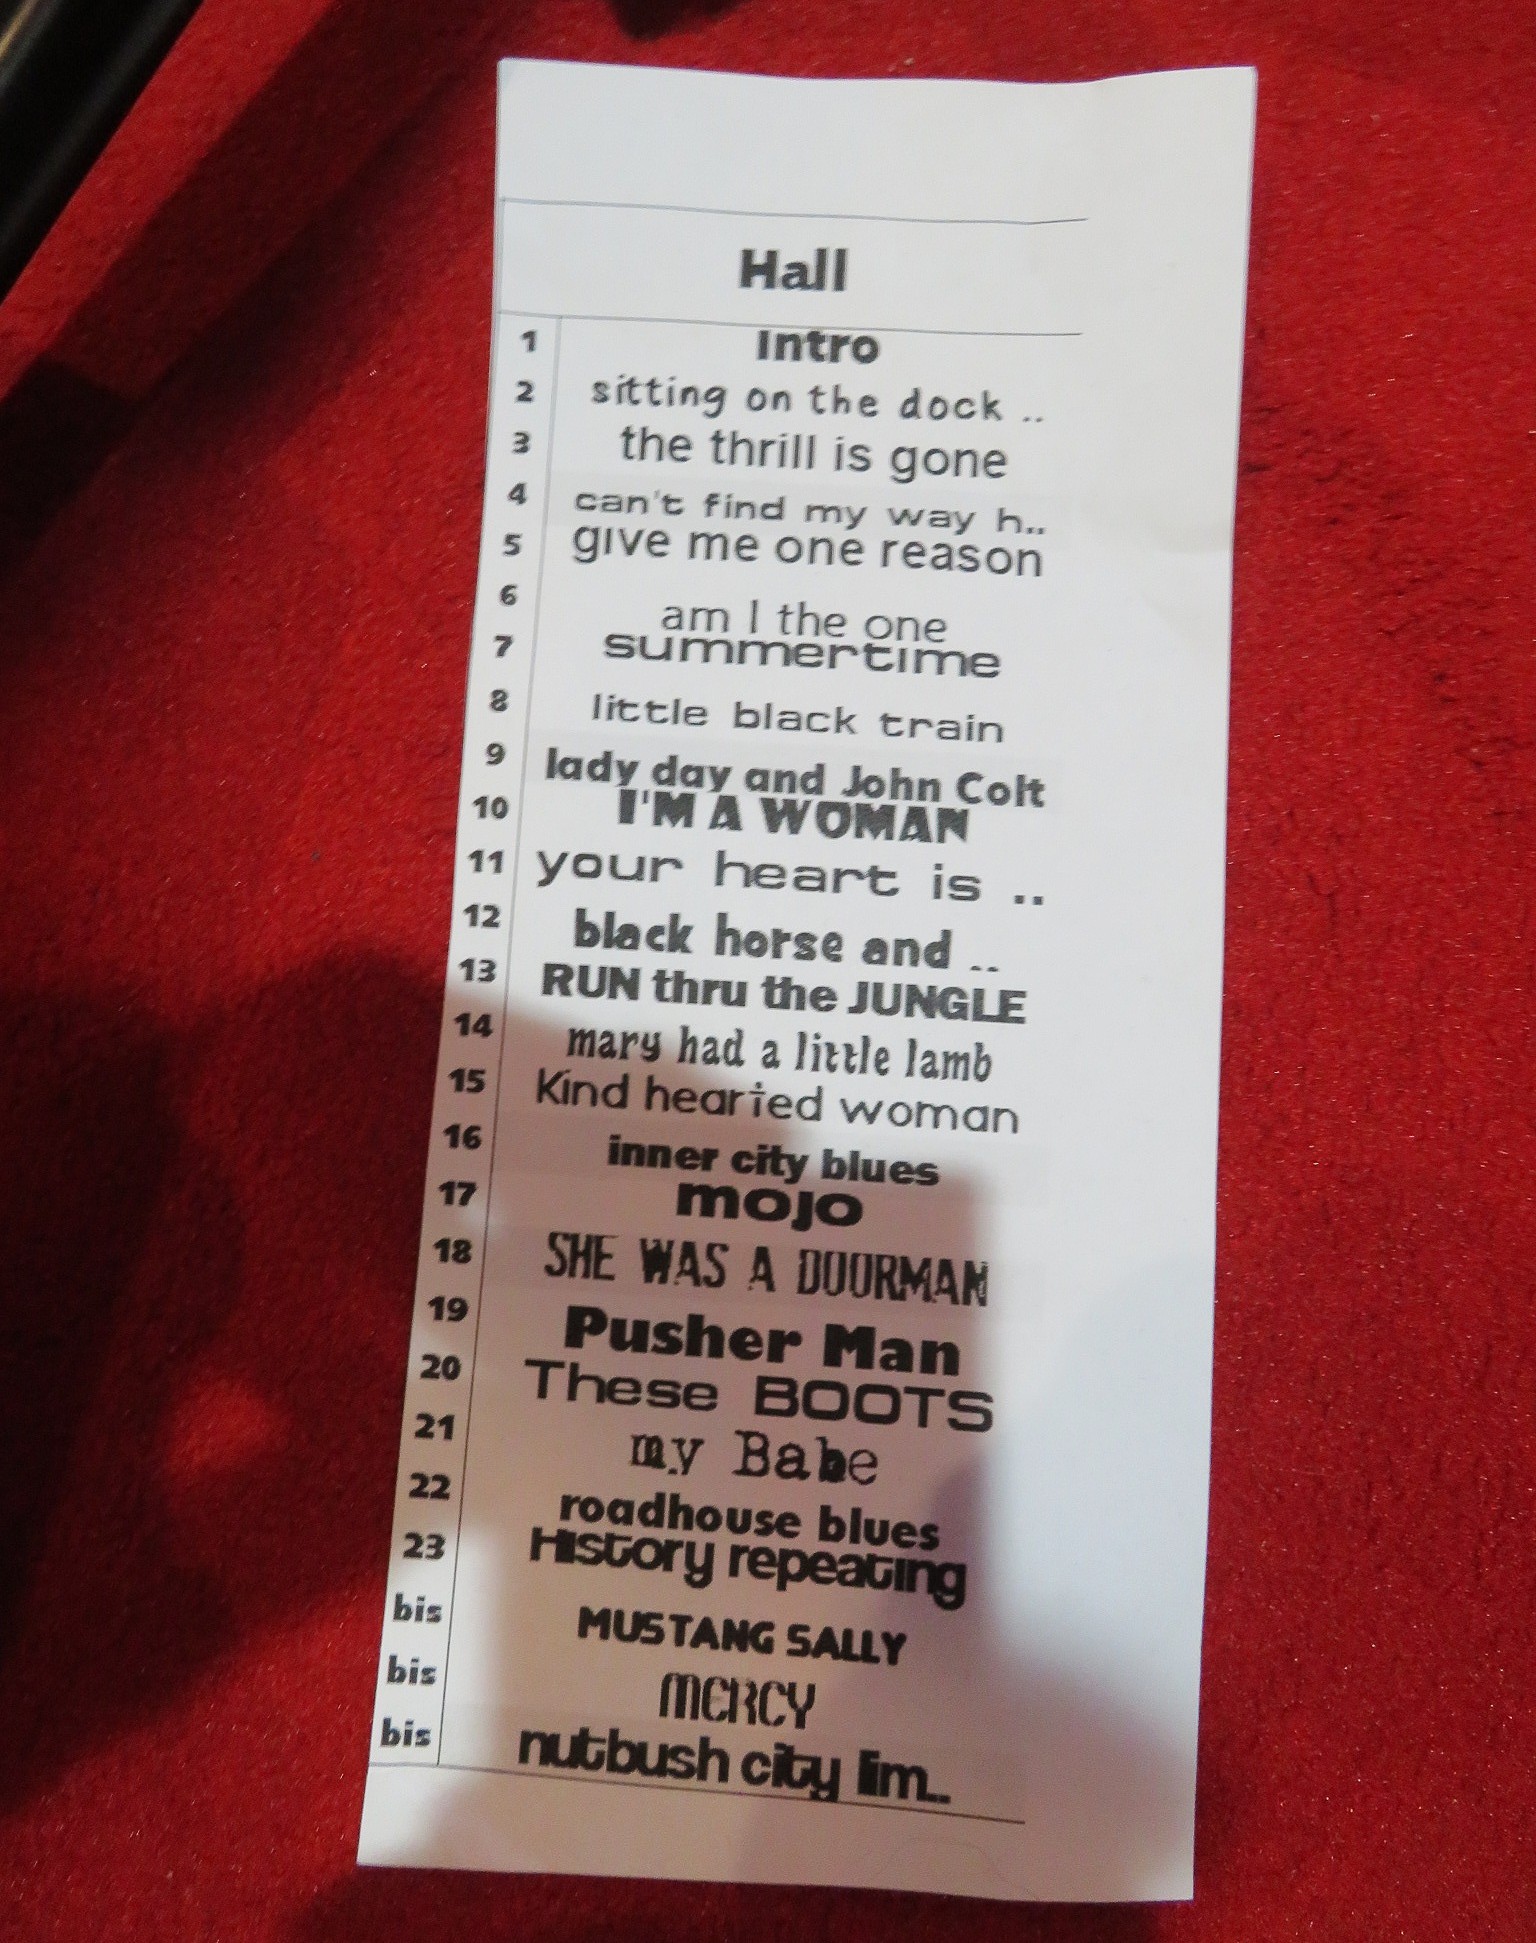 Hall
1 Intro
2 sitting on the dock ..
3 the thrill is gone
4 can't find my way h..
5 give me one reason
6 am I the one
7 summertime
8 little black train
9 lady day and John Colt
10 I'M A WOMAN
11 your heart is ..
12 black horse and ..
13 RUN thru the JUNGLE
14 mary had a little lamb
15 Kind hearted woman
16 inner city blues
17 mojo
18 SHE WAS A DOORMAN
19 Pusher Man
20 These BOOTS
21 my Babe
22 roadhouse blues
23 History repeating
bis MUSTANG SALLY
bis MERCY
bis nutbush city lim..